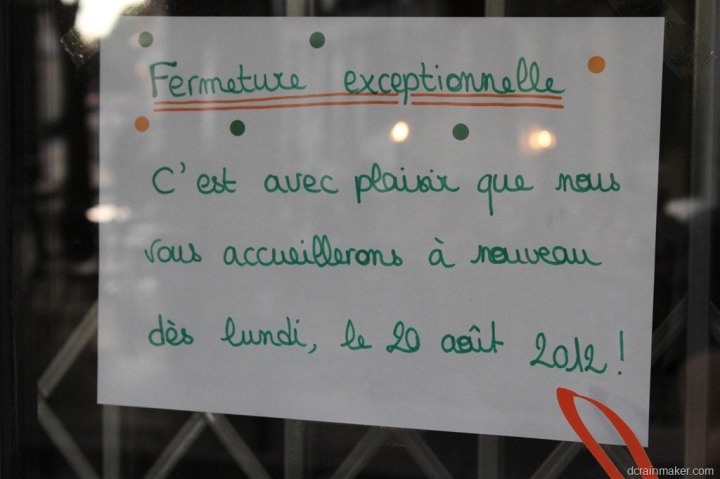 Fermeture exceptionnelle
C'est avec plaisir que nous
vous accueillerons à nouveau
dès lundi, le 20 août 2012 !
dcrainmaker.com